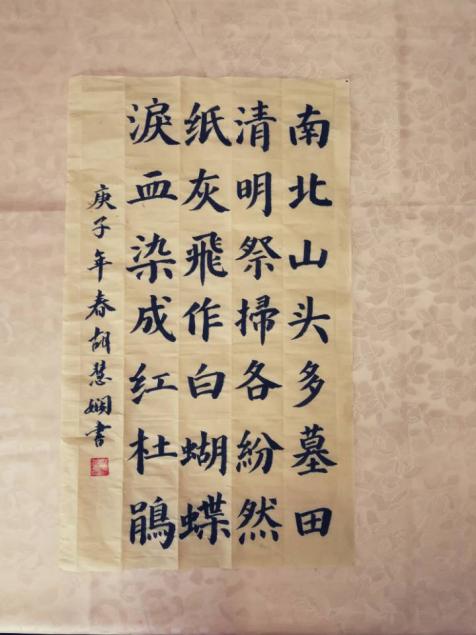 南北山头多墓田
清明祭掃各紛然
纸灰飛作白蝴蝶
淚血染成红杜鵑
庚子年春胡慧娴書